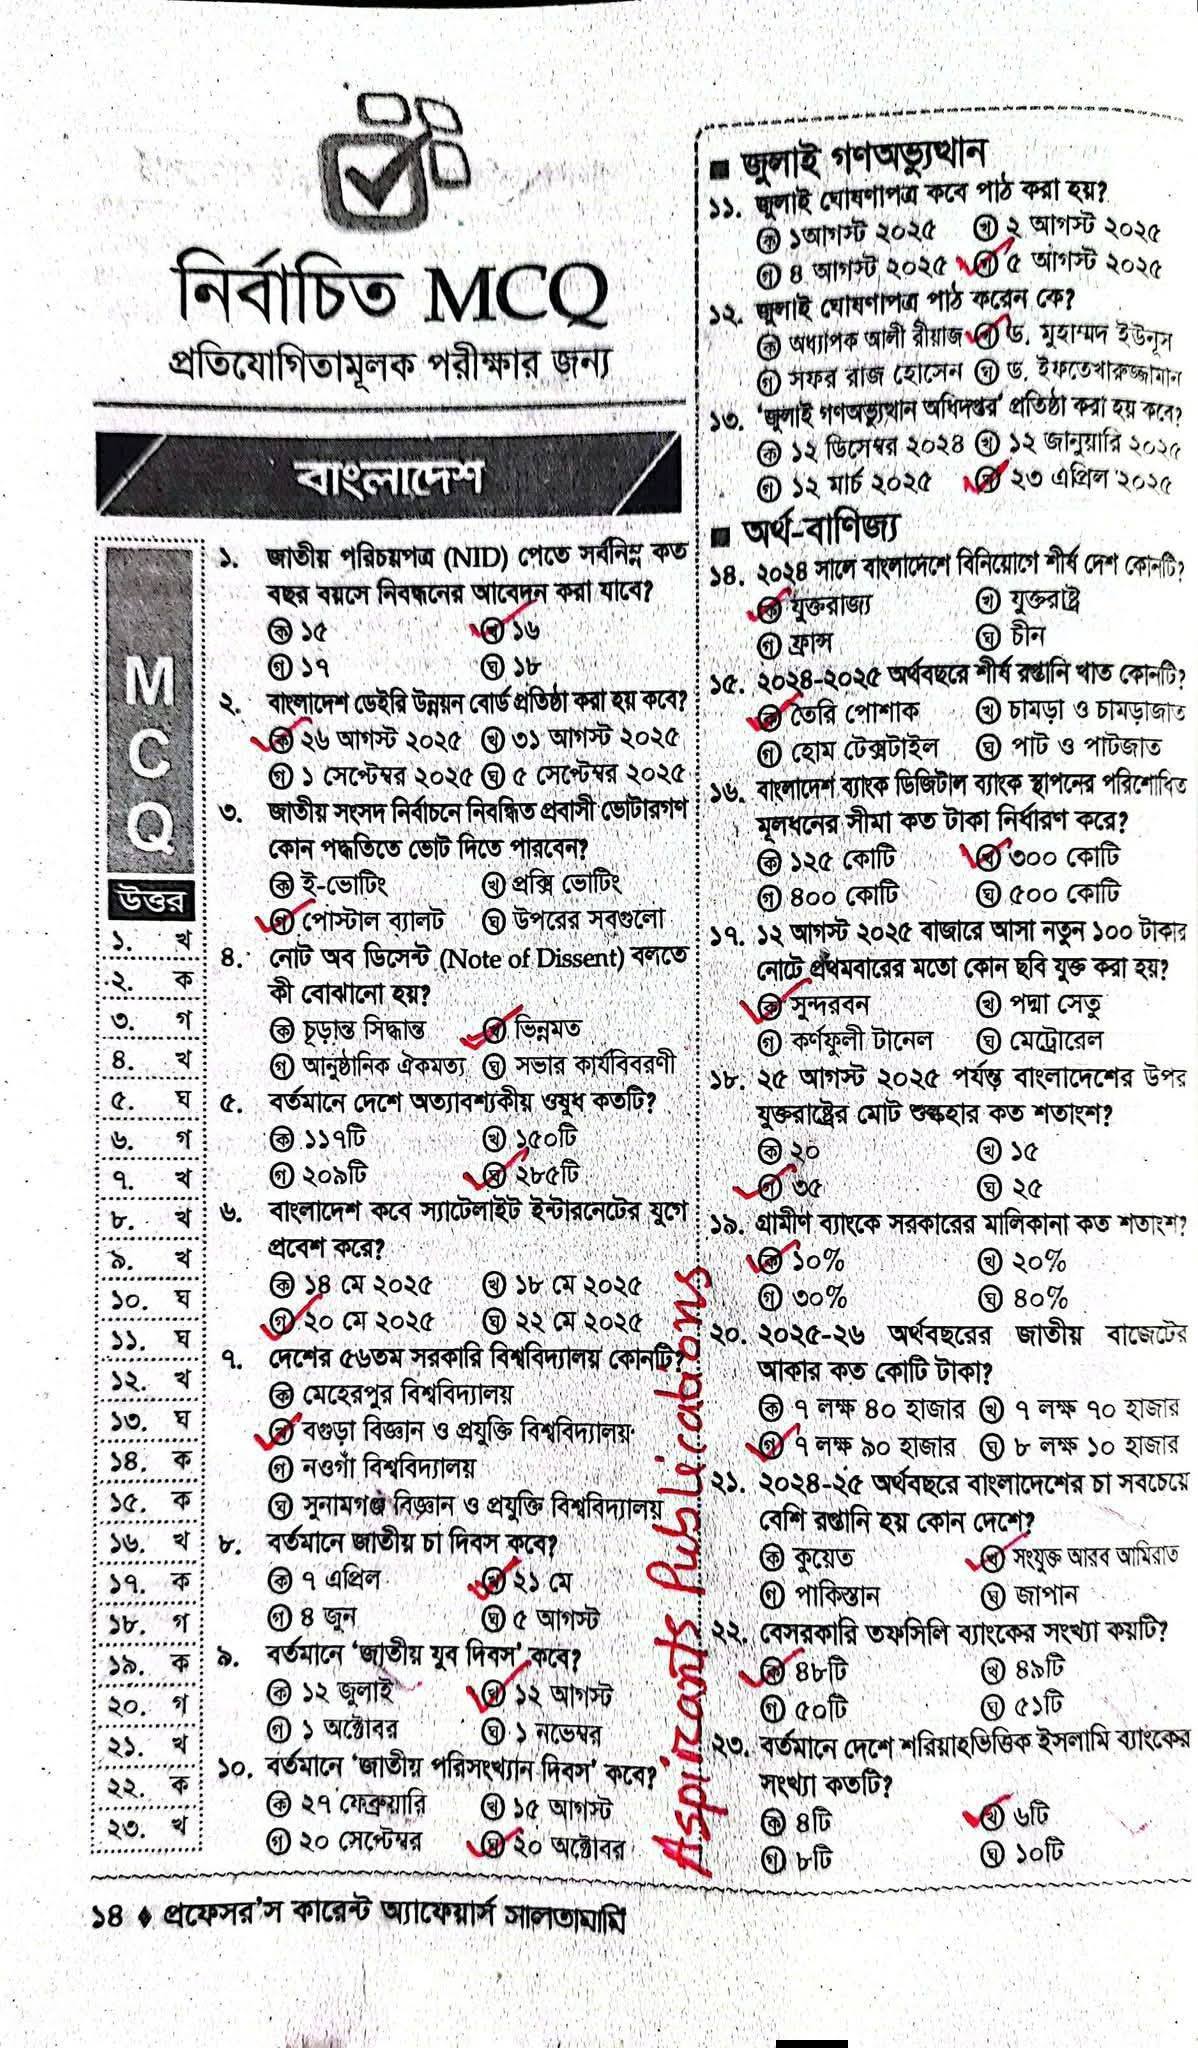 নির্বাচিত MCQ
প্রতিযোগিতামূলক পরীক্ষার জন্য
বাংলাদেশ
M
C
Q
উত্তর
১. খ
২. ক
৩. গ
৪. খ
৫. ঘ
৬. গ
৭. খ
৮. খ
৯. খ
১০. ঘ
১১. ঘ
১২. খ
১৩. ঘ
১৪. ক
১৫. ক
১৬. খ
১৭. ক
১৮. গ
১৯. ক
২০. গ
২১. খ
২২. ক
২৩. খ
১. জাতীয় পরিচয়পত্র (NID) পেতে সর্বনিম্ন কত
বছর বয়সে নিবন্ধনের আবেদন করা যাবে?
ক ১৫ খ ১৬
গ ১৭ ঘ ১৮
২. বাংলাদেশ ডেইরি উন্নয়ন বোর্ড প্রতিষ্ঠা করা হয় কবে?
ক ২৬ আগস্ট ২০২৫ খ ৩১ আগস্ট ২০২৫
গ ১ সেপ্টেম্বর ২০২৫ ঘ ৫ সেপ্টেম্বর ২০২৫
৩. জাতীয় সংসদ নির্বাচনে নিবন্ধিত প্রবাসী ভোটারগণ
কোন পদ্ধতিতে ভোট দিতে পারবেন?
ক ই-ভোটিং খ প্রক্সি ভোটিং
গ পোস্টাল ব্যালট ঘ উপরের সবগুলো
৪. নোট অব ডিসেন্ট (Note of Dissent) বলতে
কী বোঝানো হয়?
ক চূড়ান্ত সিদ্ধান্ত খ ভিন্নমত
গ আনুষ্ঠানিক ঐকমত্য ঘ সভার কার্যবিবরণী
৫. বর্তমানে দেশে অত্যাবশ্যকীয় ওষুধ কতটি?
ক ১১৭টি খ ১৫০টি
গ ২০৯টি ঘ ২৮৫টি
৬. বাংলাদেশ কবে স্যাটেলাইট ইন্টারনেটের যুগে
প্রবেশ করে?
ক ১৪ মে ২০২৫ খ ১৮ মে ২০২৫
গ ২০ মে ২০২৫ ঘ ২২ মে ২০২৫
৭. দেশের ৫৬তম সরকারি বিশ্ববিদ্যালয় কোনটি?
ক মেহেরপুর বিশ্ববিদ্যালয়
খ বগুড়া বিজ্ঞান ও প্রযুক্তি বিশ্ববিদ্যালয়
গ নওগাঁ বিশ্ববিদ্যালয়
ঘ সুনামগঞ্জ বিজ্ঞান ও প্রযুক্তি বিশ্ববিদ্যালয়
৮. বর্তমানে জাতীয় চা দিবস কবে?
ক ৭ এপ্রিল খ ২১ মে
গ ৪ জুন ঘ ৫ আগস্ট
৯. বর্তমানে ‘জাতীয় যুব দিবস’ কবে?
ক ১২ জুলাই খ ১২ আগস্ট
গ ১ অক্টোবর ঘ ১ নভেম্বর
১০. বর্তমানে ‘জাতীয় পরিসংখ্যান দিবস’ কবে?
ক ২৭ ফেব্রুয়ারি খ ১৫ আগস্ট
গ ২০ সেপ্টেম্বর ঘ ২০ অক্টোবর
Aspirant Study.icabans
■ জুলাই গণঅভ্যুত্থান
১১. জুলাই ঘোষণাপত্র কবে পাঠ করা হয়?
ক ১আগস্ট ২০২৫ খ ২ আগস্ট ২০২৫
গ ৪ আগস্ট ২০২৫ ঘ ৫ আগস্ট ২০২৫
১২. জুলাই ঘোষণাপত্র পাঠ করেন কে?
ক অধ্যাপক আলী রীয়াজ খ ড. মুহাম্মদ ইউনূস
গ সফর রাজ হোসেন ঘ ড. ইফতেখারুজ্জামান
১৩. ‘জুলাই গণঅভ্যুত্থান অধিদপ্তর’ প্রতিষ্ঠা করা হয় কবে?
ক ১২ ডিসেম্বর ২০২৪ খ ১২ জানুয়ারি ২০২৫
গ ১২ মার্চ ২০২৫ ঘ ২৩ এপ্রিল ২০২৫
■ অর্থ-বাণিজ্য
১৪. ২০২৪ সালে বাংলাদেশে বিনিয়োগে শীর্ষ দেশ কোনটি?
ক যুক্তরাজ্য খ যুক্তরাষ্ট্র
গ ফ্রান্স ঘ চীন
১৫. ২০২৪-২০২৫ অর্থবছরে শীর্ষ রপ্তানি খাত কোনটি?
ক তৈরি পোশাক খ চামড়া ও চামড়াজাত
গ হোম টেক্সটাইল ঘ পাট ও পাটজাত
১৬. বাংলাদেশ ব্যাংক ডিজিটাল ব্যাংক স্থাপনের পরিশোধিত
মূলধনের সীমা কত টাকা নির্ধারণ করে?
ক ১২৫ কোটি খ ৩০০ কোটি
গ ৪০০ কোটি ঘ ৫০০ কোটি
১৭. ১২ আগস্ট ২০২৫ বাজারে আসা নতুন ১০০ টাকার
নোটে প্রথমবারের মতো কোন ছবি যুক্ত করা হয়?
ক সুন্দরবন খ পদ্মা সেতু
গ কর্ণফুলী টানেল ঘ মেট্রোরেল
১৮. ২৫ আগস্ট ২০২৫ পর্যন্ত বাংলাদেশের উপর
যুক্তরাষ্ট্রের মোট শুল্কহার কত শতাংশ?
ক ২০ খ ১৫
গ ৩৫ ঘ ২৫
১৯. গ্রামীণ ব্যাংকে সরকারের মালিকানা কত শতাংশ?
ক ১০% খ ২০%
গ ৩০% ঘ ৪০%
২০. ২০২৫-২৬ অর্থবছরের জাতীয় বাজেটের
আকার কত কোটি টাকা?
ক ৭ লক্ষ ৪০ হাজার খ ৭ লক্ষ ৭০ হাজার
গ ৭ লক্ষ ৯০ হাজার ঘ ৮ লক্ষ ১০ হাজার
২১. ২০২৪-২৫ অর্থবছরে বাংলাদেশের চা সবচেয়ে
বেশি রপ্তানি হয় কোন দেশে?
ক কুয়েত খ সংযুক্ত আরব আমিরাত
গ পাকিস্তান ঘ জাপান
২২. বেসরকারি তফসিলি ব্যাংকের সংখ্যা কয়টি?
ক ৪৮টি খ ৪৯টি
গ ৫০টি ঘ ৫১টি
২৩. বর্তমানে দেশে শরিয়াহভিত্তিক ইসলামি ব্যাংকের
সংখ্যা কতটি?
ক ৪টি খ ৬টি
গ ৮টি ঘ ১০টি
১৪ ♦ প্রফেসর’স কারেন্ট অ্যাফেয়ার্স সালতামামি